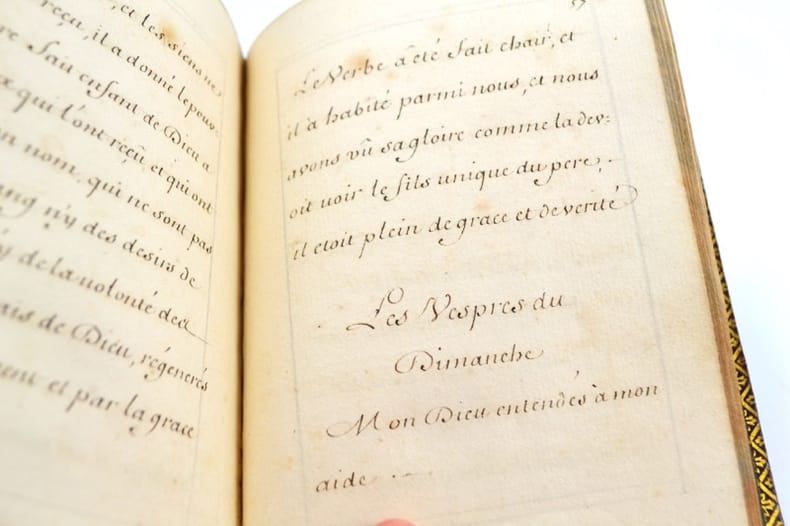 , et les siens ne
reçu, il a donné le pouv-
re fait enfant de Dieu a
qui l'ont reçû, et qui ont
nom, qui ne sont pas
ang n'y des desirs de
y de la volonté de
ais de Dieu, régenerés
ent et par la grace
Le Verbe â été fait chair, et
il â habité parmi nous, et nous
avons vû sa gloire comme la dev-
oit voir le fils unique du pere,
il etoit plein de grace et de verité
Les Vespres du
Dimanche
Mon Dieu entendés â mon
aide